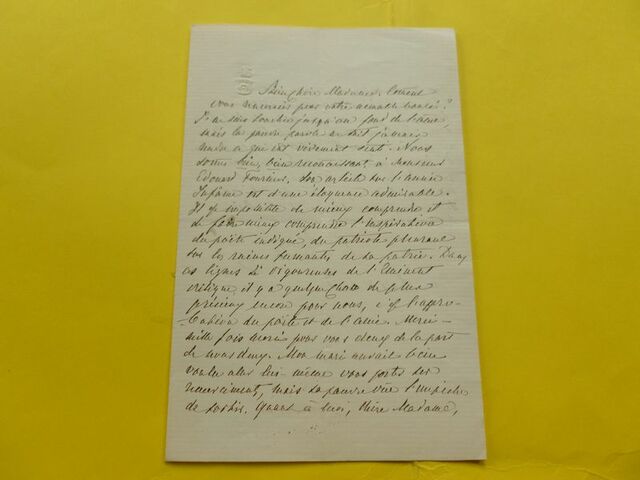 Bien chère Madame, Comment
vous remercier pour votre aimable bonté?
J'en suis touchée jusqu'au fond de l'âme,
mais la pauvre parole ne sait jamais
rendre ce qui est vivement senti. Nous
sommes bien, bien reconnaissants à Monsieur
Edouard Fournier. Son article sur l'année
Infâme est d'une éloquence admirable.
Il est impossible de mieux comprendre et
de faire mieux comprendre l'inspiration
du poète indigné, du patriote pleurant
sur les ruines fumantes de sa patrie. Dans
ces lignes si vigoureuses de l'éminent
critique il y a quelque chose de plus
précieux encore pour nous, c'est l'appré-
-ciation du poète et de l'ami. Merci
mille fois merci pour vous deux de la part
de nous deux. Mon mari aurait bien
voulu aller lui même vous porter ses
remerciments, mais sa pauvre vue l'empêche
de sortir. Quant à moi, chère Madame,